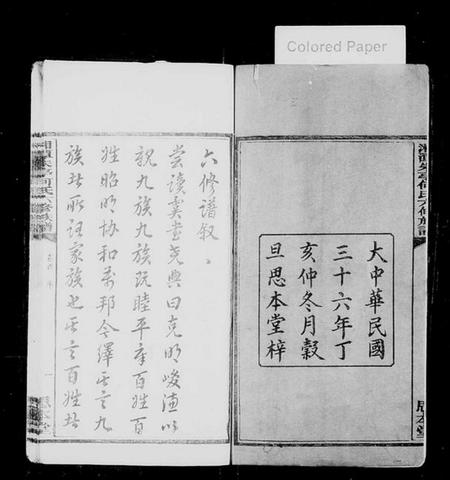 Colored Paper
大中華民國
三十六年丁
亥仲冬月穀
旦思本堂梓
思本堂
六修譜叙
嘗讀虞書堯典曰克明峻德以
親九族九族既睦平章百姓百
姓昭明協和萬邦今繹其言九
族者所謂家族也其言百姓者
思本堂